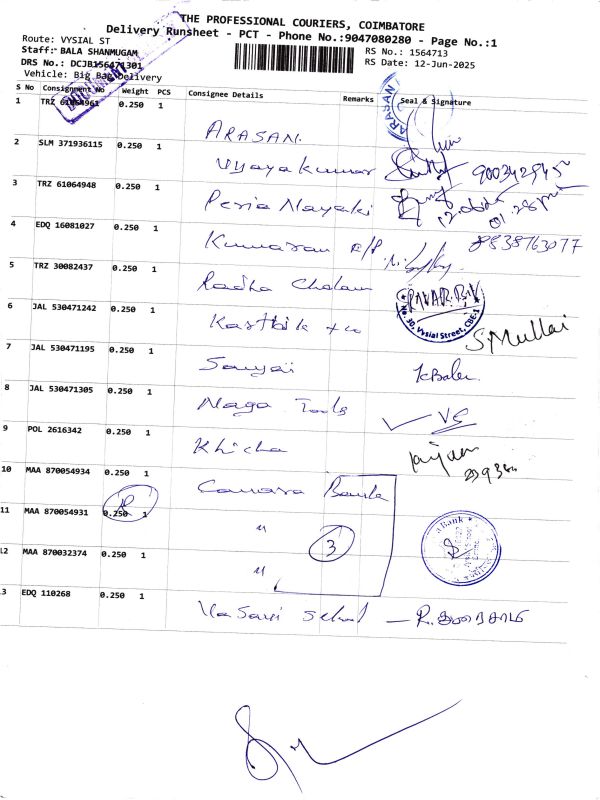 THE PROFESSIONAL COURIERS, COIMBATORE
Delivery Runsheet - PCT - Phone No.:9047080280 - Page No.:1
Route: VYSIAL ST
RS No.: 1564713
Staff: BALA SHANMUGAM
RS Date: 12-Jun-2025
DRS No.: DCJB1564713O1
Vehicle: Big Bag Delivery
S No Consignment No Weight PCS Consignee Details Remarks Seal & Signature
1 TRZ 61064961 0.250 1 ARASAN
2 SLM 371936115 0.250 1 Vijayakumar
3 TRZ 61064948 0.250 1 Peria Nayaki
4 EDQ 16081027 0.250 1 Kumaran 8838763077
5 TRZ 30082437 0.250 1 Radha
6 JAL 530471242 0.250 1 Karthik + co S. Mullai
30, Vysial Street, CBE-1
7 JAL 530471195 0.250 1 K Balu
8 JAL 530471305 0.250 1 Naga Tools VS
9 POL 2616342 0.250 1 Khicha
10 MAA 870054934 0.250 1 Canara Bank
11 MAA 870054931 0.250 1 "
3
12 MAA 870032374 0.250 1 "
13 EDQ 110268 0.250 1 Vasavi School